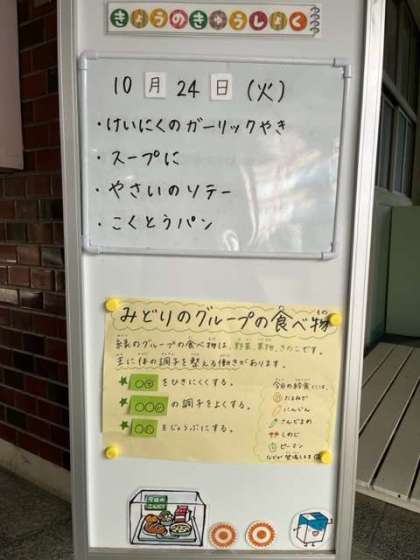 きょうのきゅうしょく
10月24日(火)
・けいにくのガーリックやき
・スープに
・やさいのソテー
・こくとうパン
みどりのグループの食べ物
緑のグループの食べ物は、野菜、果物、きのこです。
主に体の調子を整える働きがあります。
★○○をひきにくくする。
★○○○の調子をよくする。
★○○をじょうぶにする。
今日の給食には、
たまねぎ
にんじん
さんどまめ
しめじ
ピーマン